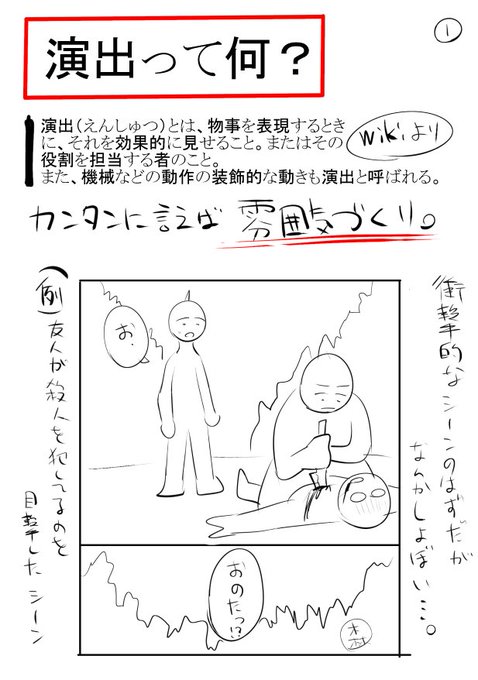 ①
演出って何？
演出（えんしゅつ）とは、物事を表現するとき
に、それを効果的に見せること。またはその
役割を担当する者のこと。
また、機械などの動作の装飾的な動きも演出と呼ばれる。
wikiより
カンタンに言えば 雰囲気づくり。
衝撃的なシーンのはずだが
なんかしょぼい…。
お、
おのたっ!?
木村
(例)友人が殺人を犯してるのを
目撃したシーン